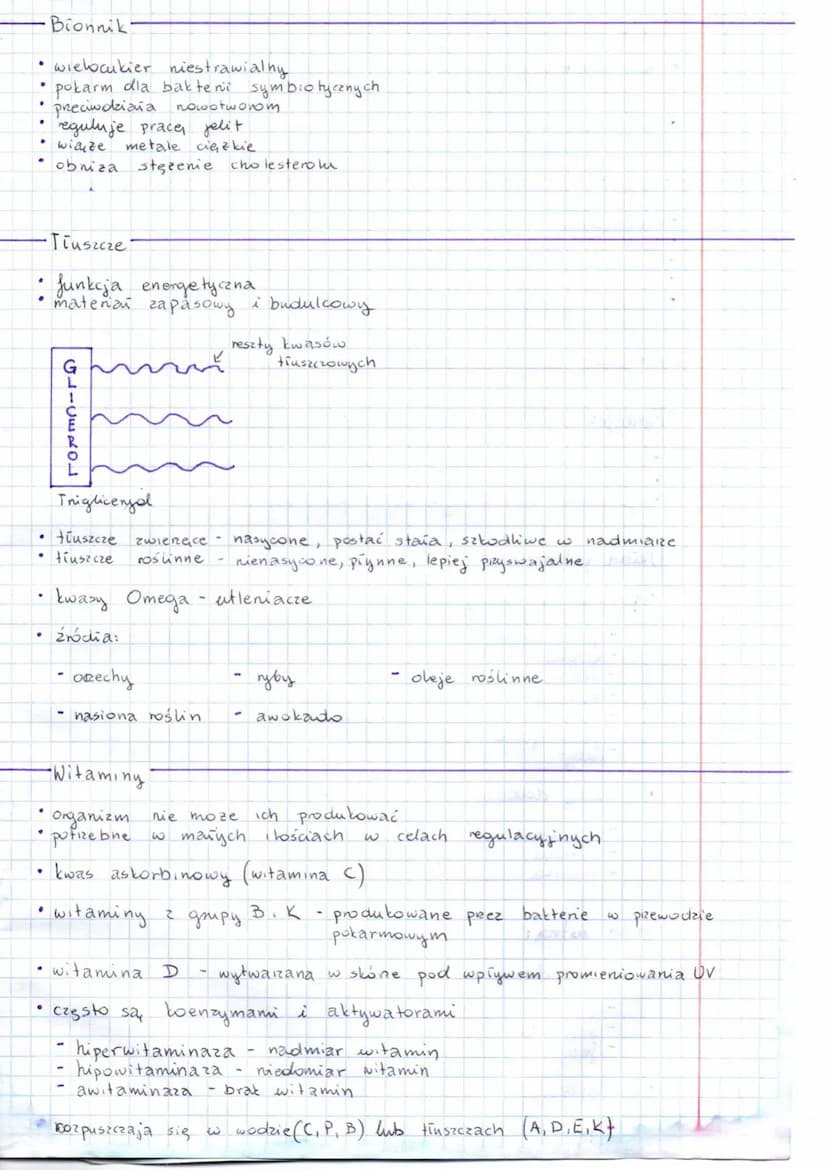 Błonnik
• wielocukier niestrawialny
• pokarm dla bakterii symbiotycznych
• przeciwdziała nowotworom
• reguluje pracę jelit
• wiąże metale ciężkie
• obniża stężenie cholesterolu
Tłuszcze
• funkcja energetyczna
• materiał zapasowy i budulcowy
reszty kwasów
tłuszczowych
GLICEROL
Triglicerydl
• tłuszcze zwierzęce - nasycone, postać stała, szkodliwe w nadmiarze
• tłuszcze roślinne - nienasycone, płynne, lepiej przyswajalne
• kwasy Omega - utleniacze
• źródła:
- orzechy - ryby - oleje roślinne
- nasiona roślin - awokado
Witaminy
• organizm nie może ich produkować
• potrzebne w małych ilościach w celach regulacyjnych
• kwas askorbinowy (witamina C)
• witaminy z grupy B i K - produkowane przez bakterie w przewodzie
pokarmowym
• witamina D - wytwarzana w skórze pod wpływem promieniowania UV
• często są koenzymami i aktywatorami
- hiperwitaminaza - nadmiar witamin
- hipowitaminaza - niedomiar witamin
- awitaminaza - brak witamin
• rozpuszczają się w wodzie (C, P, B) lub tłuszczach (A, D, E, K)